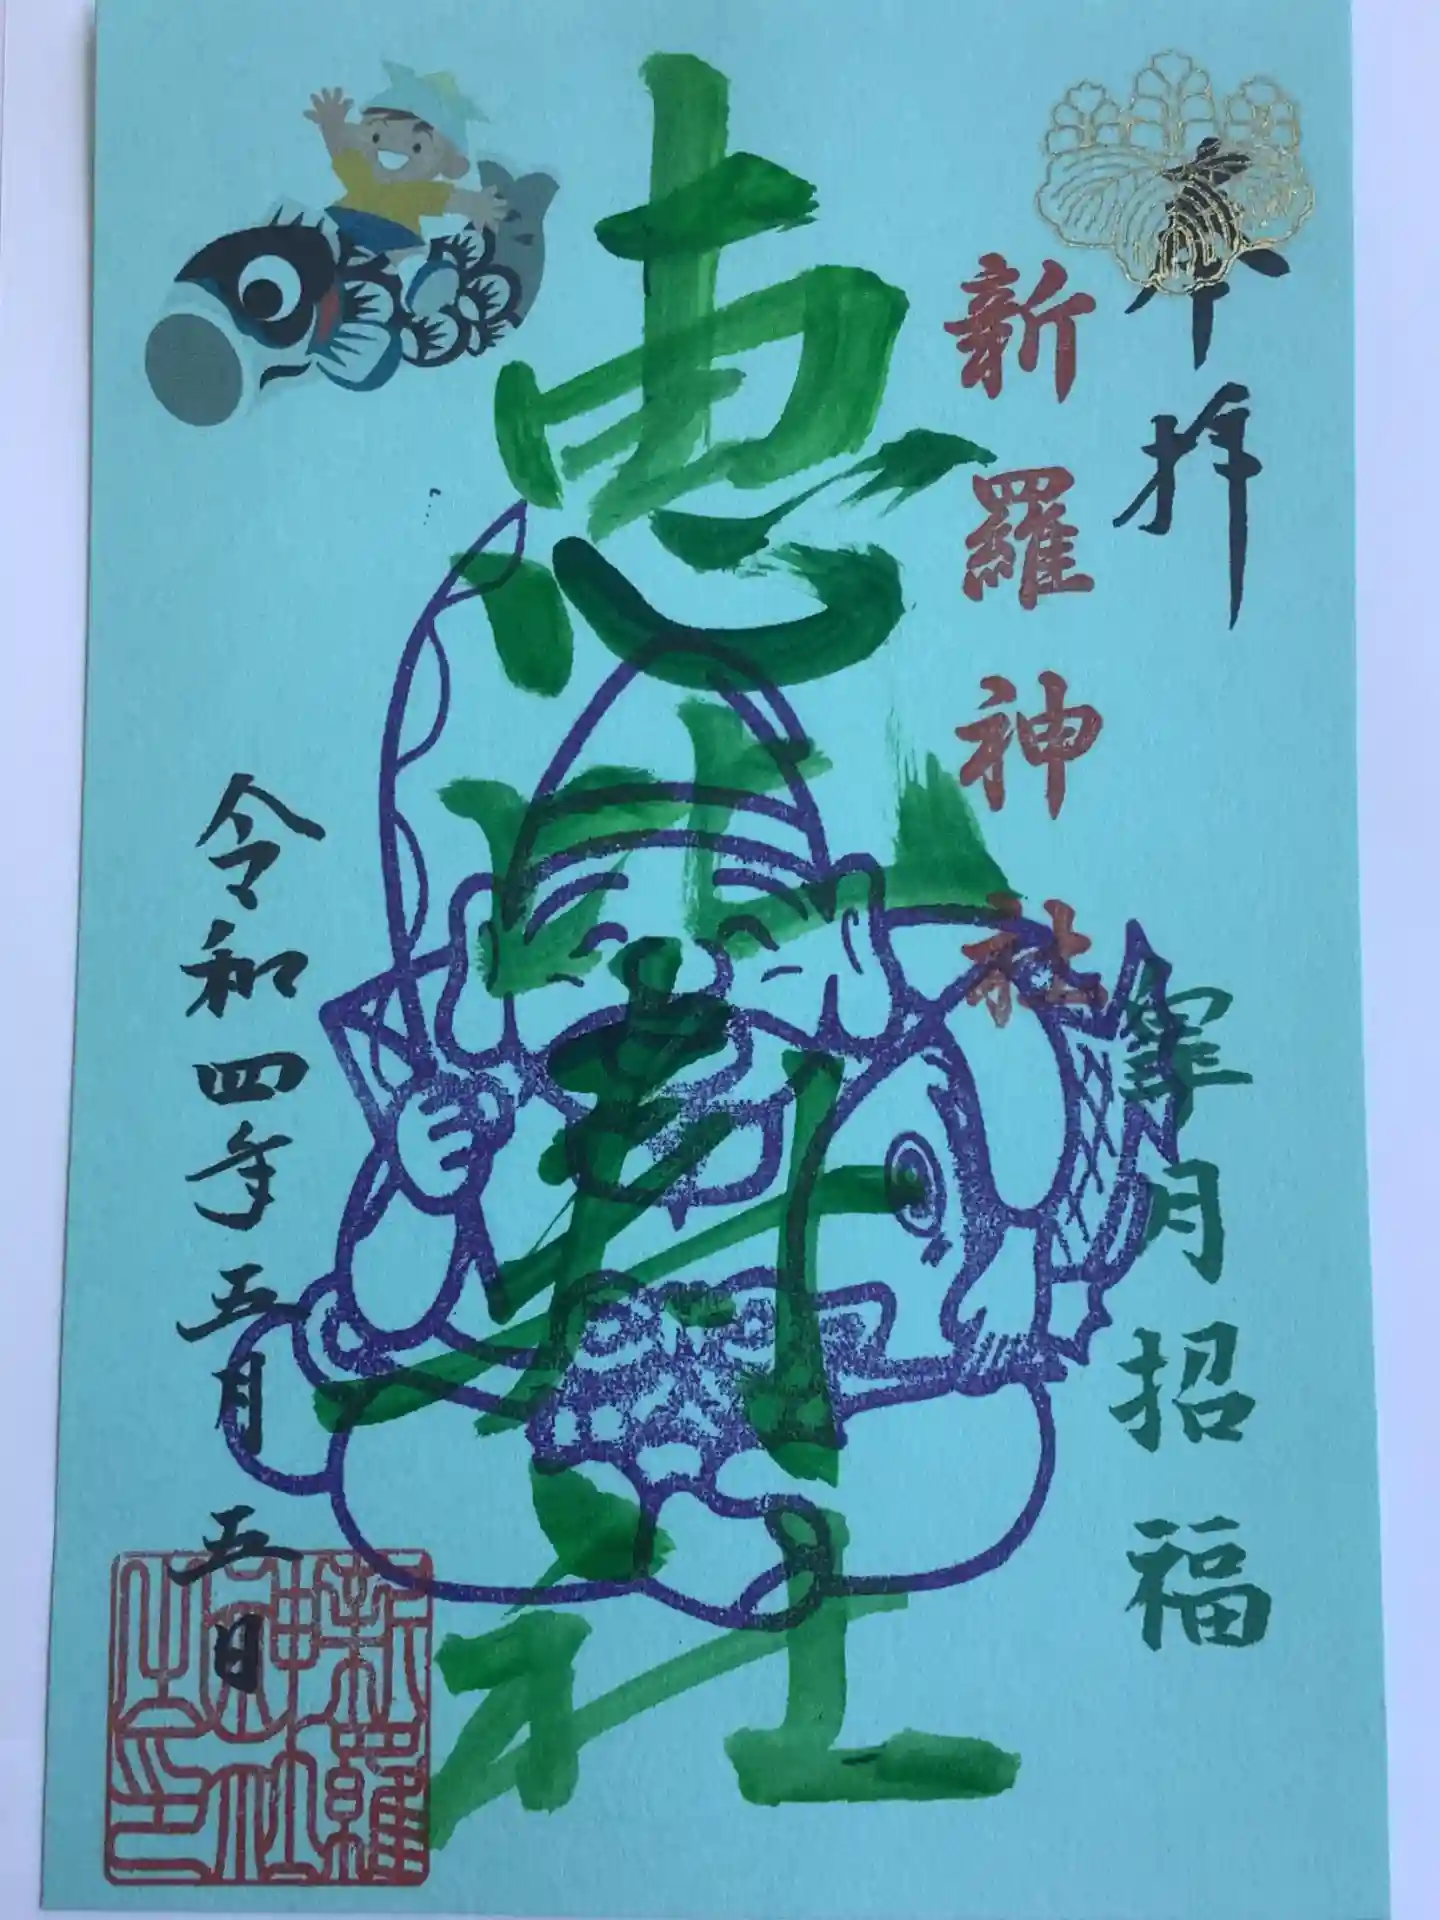 奉拝
皐月招福
新羅神社
恵比寿社
令和四年五月五日
新羅
神社
之印